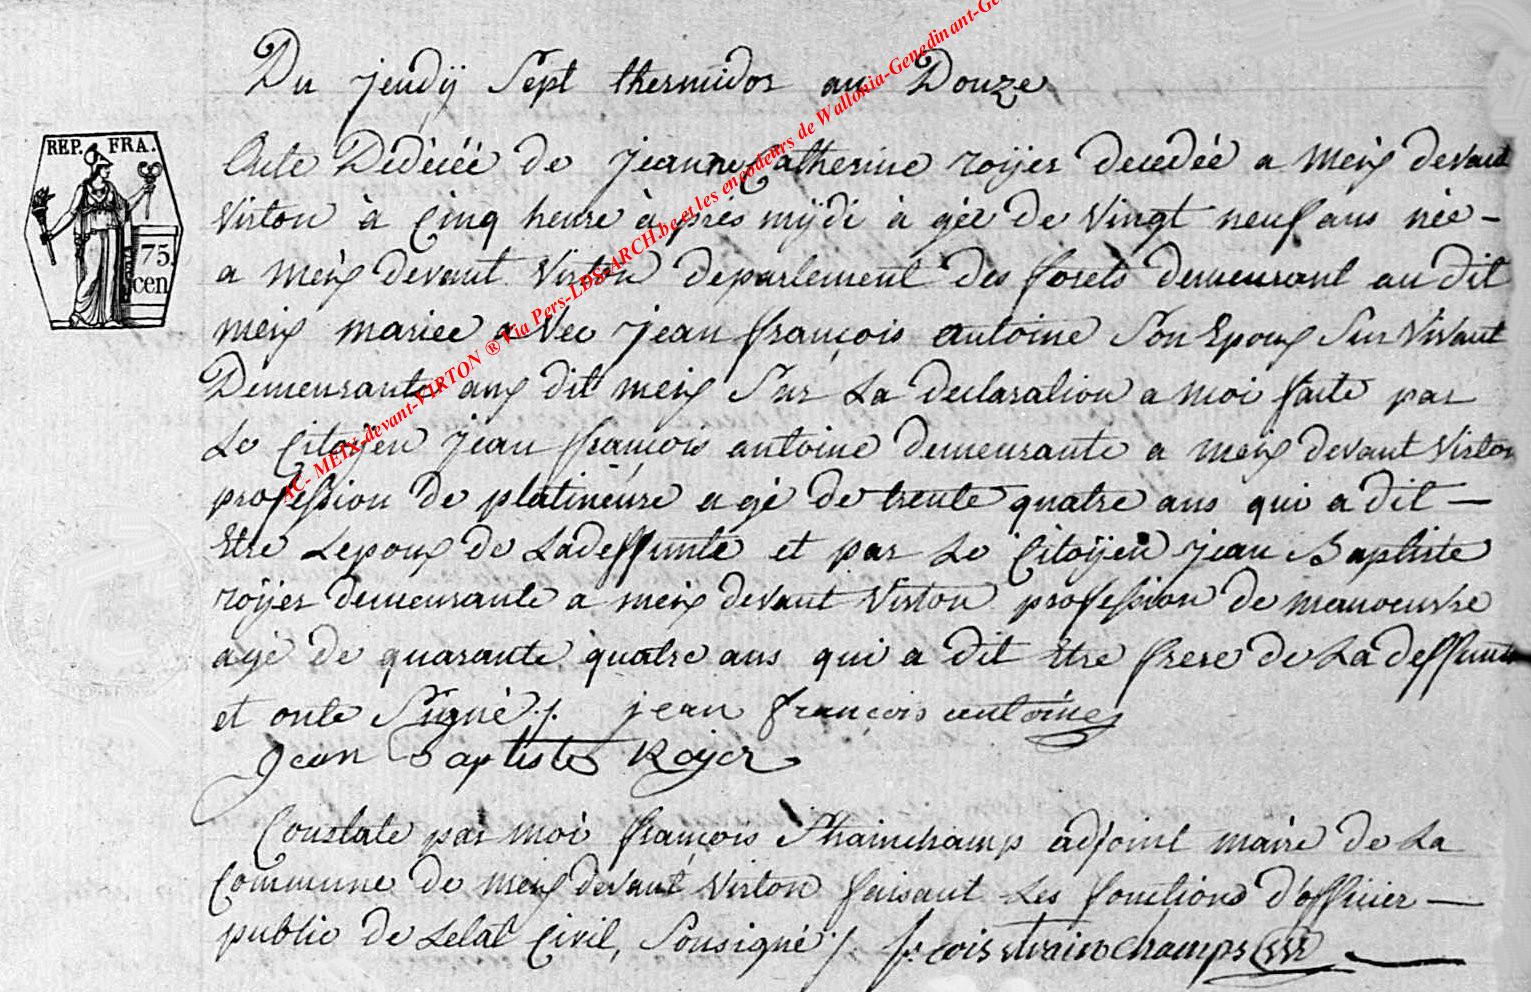 Du jeudÿ Sept thermidor an Douze
REP. FRA.
75.
cen
Acte Dédécéé de jeanne Catherine roÿer decedéé a meix devant
Virton à Cinq heure à près mÿdi à géé de Vingt neuf ans née -
a meix devant Virton departement des forets demeurant au dit
meix mariee a Vec jean françois antoine Son Epoux Sur Vivant
Demeurante aux dit meix Sur La declaration a moi faite par
Le Citoÿen jean françois antoine demeurante a meix devant Virton
profession de platineure agé de trente quatre ans qui a dit —
Etre Lepoux de Ladeffunte et par Le Citoÿen jean Baptiste
roÿer demeurante a meix devant Virton profession de manoeuvre
agé de quarante quatre ans qui a dit Etre frere de La deffunte
et onte Signé ./. jean françois antoine
Jean Baptiste Roÿer
Constate par moi françois Strainchamp adjoint maire de La
Commune de meix devant Virton faisant Les fonctions d'officier —
public de Letat Civil, Sousigné ./. f. cois strainchamps
AC- MEIX-devant-VIRTON ® Via Pers-LDS-ARCH.be et les encodeurs de Wallonia-Genedinant-Ge